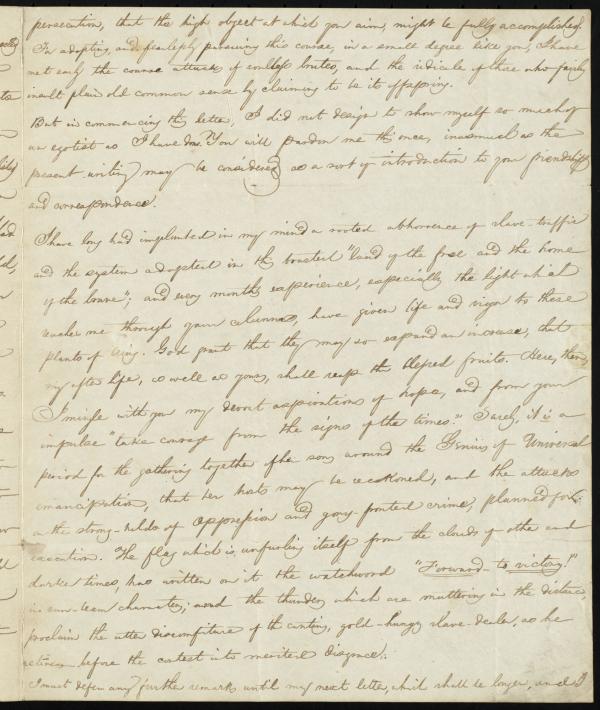 persecution, that the high object at which you aim, might be fully accomplished.
In adopting, and fearlessly pursuing this course, in a small degree like you, I have
met early the coarse attacks of endless brutes, and the ridicule of those who fairly
insult plain old common sense by claiming to be its offspring.
But in commencing this letter, I did not design to show myself so much of
an egotist as I have done. You will pardon me this once, inasmuch as the
present writing may be considered as a sort of introduction to your friendship
and correspondence.
I have long had implanted in my mind a rooted abhorrence of slave-traffic
and the system adopted in this boasted "land of the free and the home
of the brave"; and every month's experience, especially the light which
reaches me through your columns, have given life and vigor to these
plants of . God grant that they may so expand an increase, that
my after life, as well as yours, shall reap the blessed fruits. Here, then,
I mingle with you my devout aspirations of hope, and from your
impulse "take courage from the signs of the times." Surely, it is a
period for the gathering together of the sons around the Genius of Universal
emancipation, that her hosts may be reckoned, and the attacks
on the strong-holds of oppression and gory-fronted crime, planned for
execution. The flag which is unfurling itself from the clouds of other and
darker times, has written on it the watchword "Forward to victory!"
in sun-beam characters; and the thunders which are muttering in the distance
proclaim the utter discomfiture of the canting, gold-hungry slave-dealer, as he
retires before the into merited disgrace.
I must defer any further remarks until my next letter, which shall be longer, and I